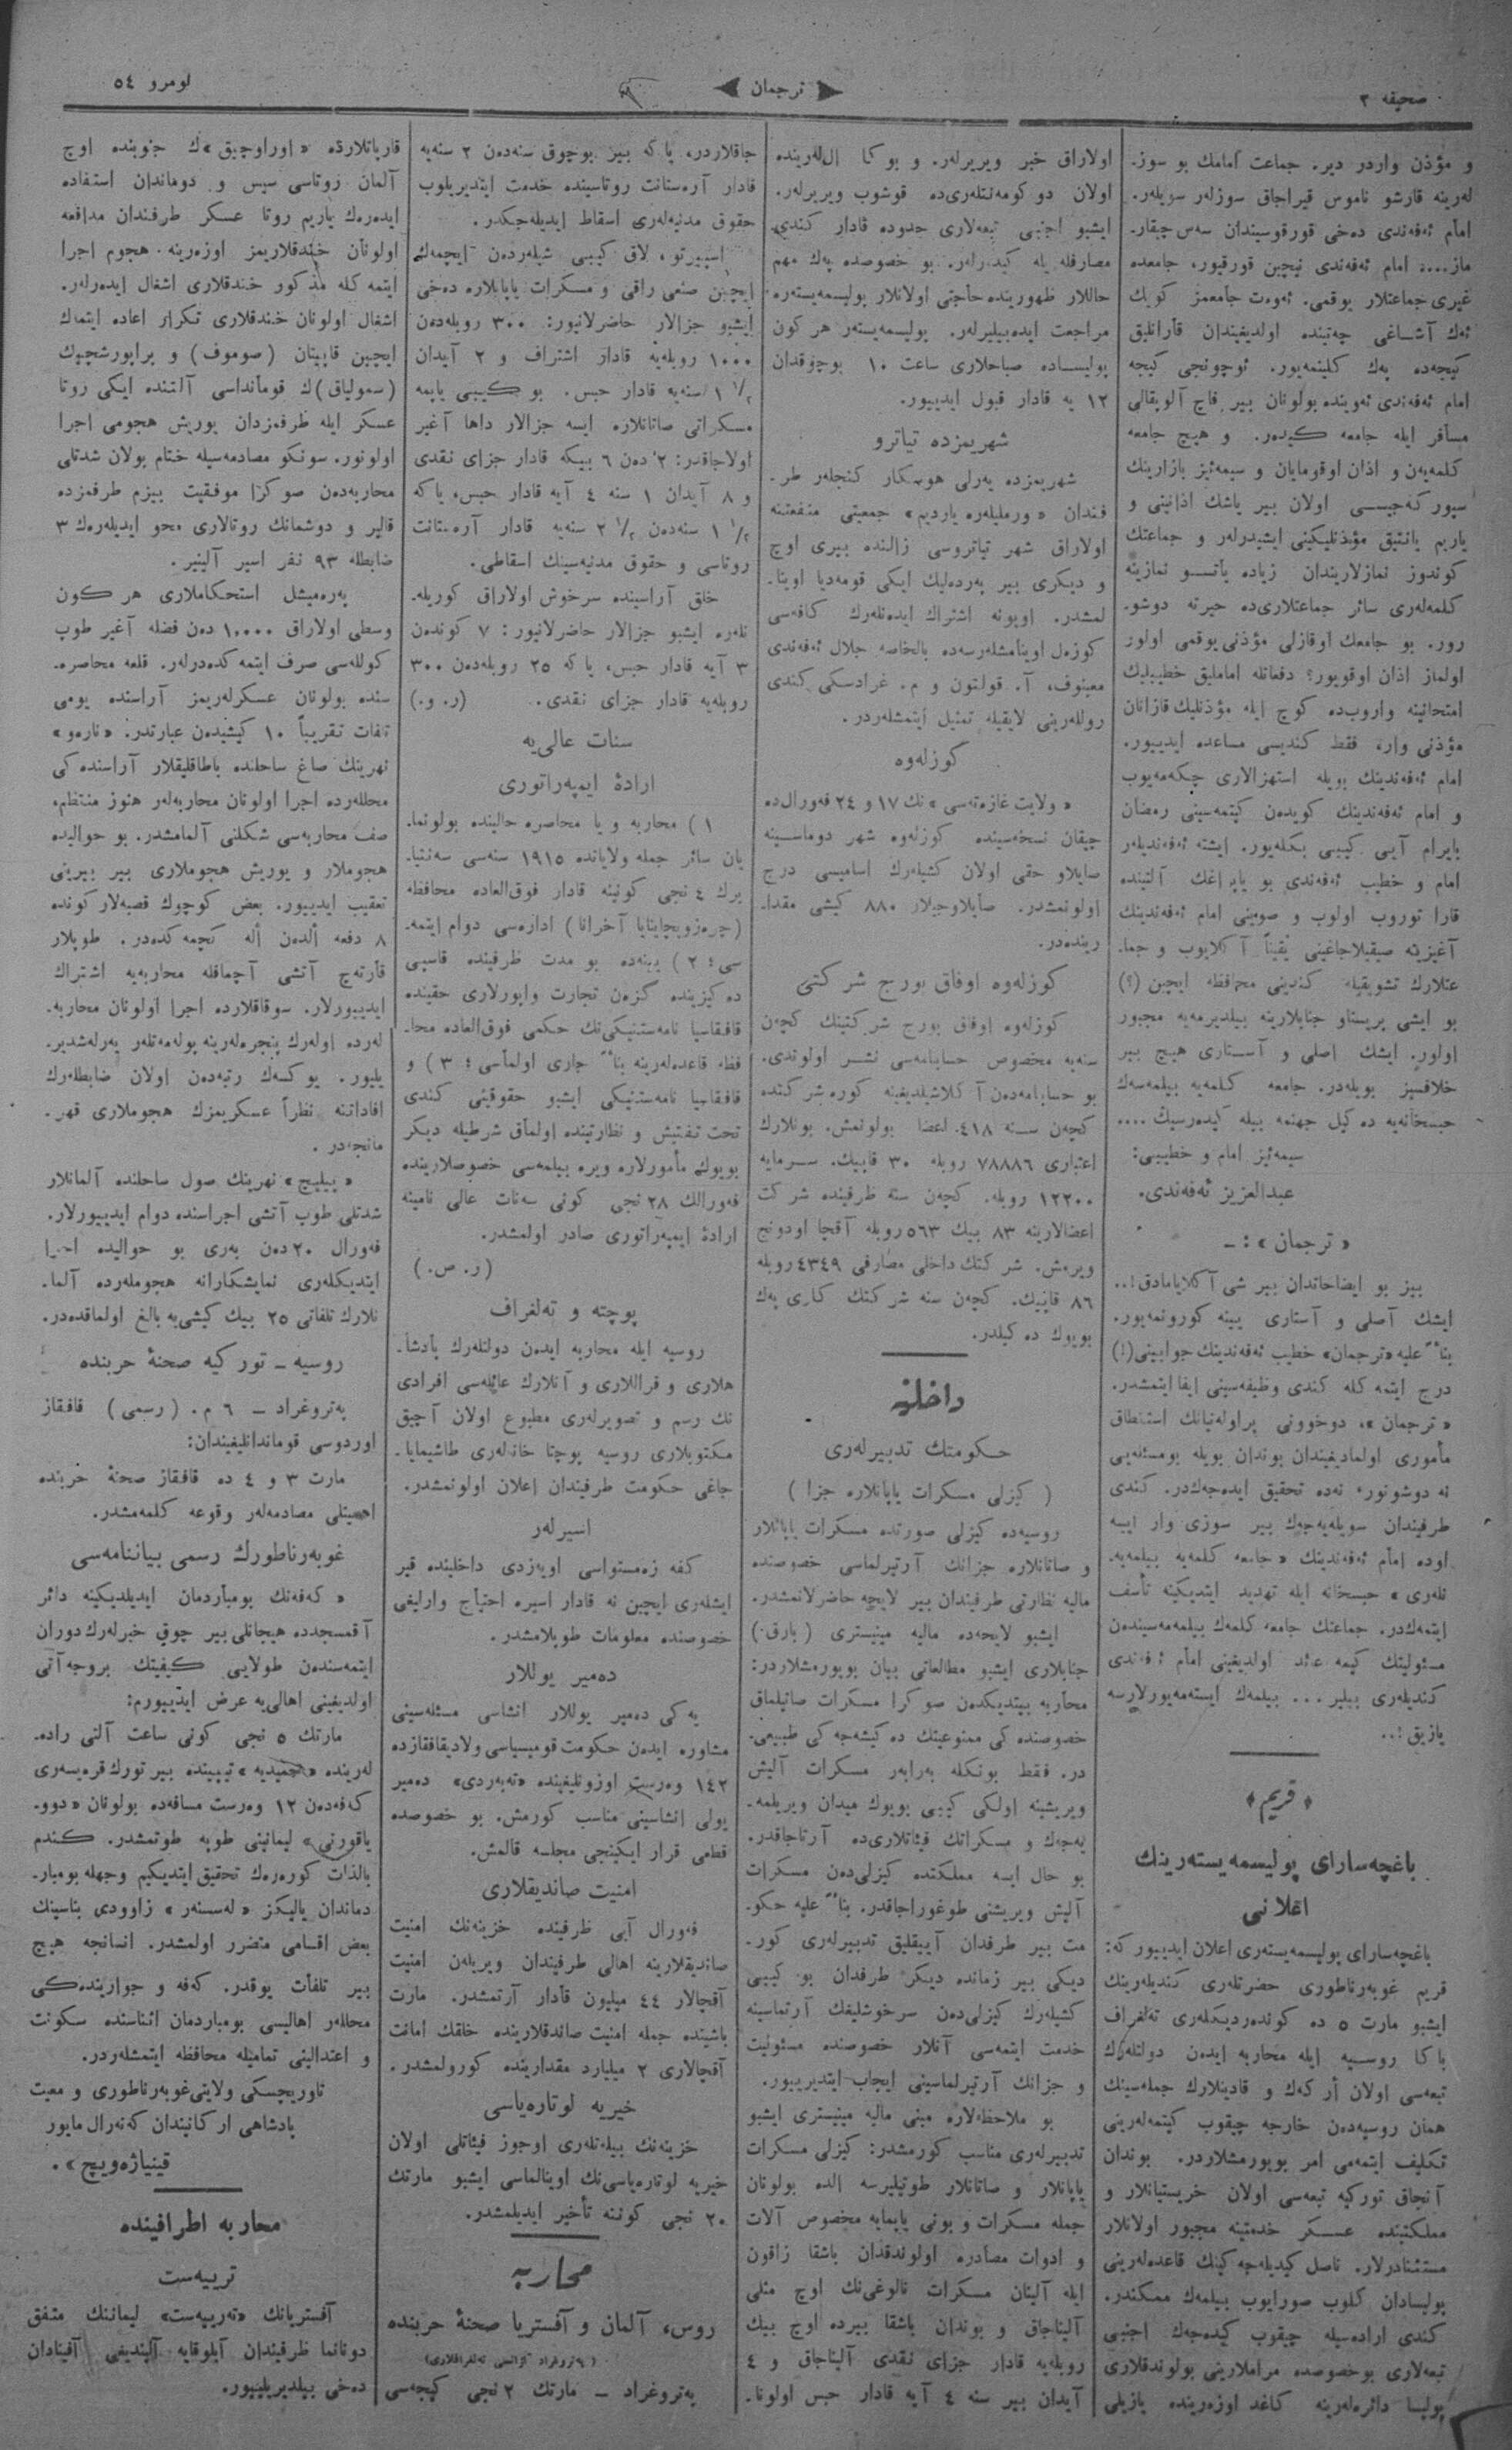 صحیفه ٢
ترجمان
نومرو ٥٤
و مؤذن واردر دیر. جماعت امامك بو سوز-
لەرینه قارشو ناموس قیراجاق سوزلەر سویلەر.
امام ئەفەندی دەخی قورقوسیندان سەس چیقار-
ماز.... امام ئەفەندی نیچین قورقیور، جامعده
غیری جماعتلار یوقمی. ئەوەت جامعمز كویك
ئەك آشاغی چەتینده اولدیغیندان قارانلیق
كیجەده پەك كلینمەیور. ئوچونجی كیجه
امام ئەفەندی ئەوینده بولونان بیر قاچ آلویقالی
مسافر ایله جامعه كیدەر. و هیچ جامعه
كلمەیەن و اذان اوقومایان و سیمەئیز بازارینك
سیور كەجیسی اولان بیر یاشك اذانینی و
یاریم یانئیق مؤذنلیكینی ایشیدرلەر و جماعتك
كوندوز نمازلاریندان زیاده یاتسو نمازینه
كلمەلەری سائر جماعتلاری‌ده حیرته دوشو-
رور. بو جامعك اوقازلی مؤذنی یوقمی اولور
اولماز اذان اوقویور؟ دفعاتله اماملیق خطیبلیك
امتحانینه واروب‌ده كوچ ایله مؤذنلیك قازانان
مؤذنی وار، فقط كندیسی مساعده ایدییور.
امام ئەفەندینك بویله استهزالاری چكەمەیوب
و امام ئەفەندینك كویدەن كیتمەسینی رمضان
بایرام آیی كیبی بكلەیور. ایشته ئەفەندیلەر
امام و خطیب ئەفەندی بو یاپراغك آلتینده
قارا توروب اولوب و صوینی امام ئەفەندینك
آغیزینه صیقیلاجاغینی یقیناً آكلایوب و جما-
عتلارك تشویقیله كندینی محافظه ایچین (؟)
بو ایشی پریستاو جنابلارینه بیلدیرمەیه مجبور
اولور. ایشك اصلی و آستاری هیچ بیر
خلافسیز بویلەدر. جامعه كلمەیه بیلمەسەك
حبسخانەیه دەكیل جهنمه بیله كیدەرسیك ....
سیمەئیز امام و خطیبی:
عبدالعزیز ئەفەندی.
«ترجمان»: ـ
بیز بو ایضاحاتدان بیر شی آكلایامادق!..
ایشك آصلی و آستاری یینه كورونمەیور.
بناءً علیه «ترجمان» خطیب ئەفەندینك جوابینی(!)
درج ایتمەكله كندی وظیفەسینی ایفا ایتمشدر.
«ترجمان»، دوخوونی پراولەنیانك استنطاق
مأموری اولمادیغیندان بوندان بویله بومسئلەیی
نه دوشونور، نەده تحقیق ایدەجەك‌در. كندی
طرفیندان سویلەیەجەك بیر سوزی وار ایسه
اوده امام ئەفەندینك «جامعه كلمەیه بیلمەیە-
نلەری» حبسخانه ایله تهدید ایتدیكینه تأسف
ایتمەك‌در. جماعتك جامعه كلمەك بیلمەمەسیندەن
مسئولیتك كیمه عائد اولدیغینی امام ئەفەندی
كندیلەری بیلیر... بیلمەك ایستەمەیورلارسه
یازیق!..
«قریم»
باغچەسارای پولیسمەیستەرینك
اعلانی
باغچەسارای پولیسمەیستەری اعلان ایدییور كه:
قریم غوبەرناطوری حضرتلەری كندیلەرینك
ایشبو مارت ٥ ده كوندەردیكلەری تەلغراف
باكا روسیه ایله محاربه ایدەن دولتلەرك
تبعەسی اولان أركەك و قادینلارك جملەسینك
همان روسیەدەن خارجه چیقوب كیتمەلەرینی
تكلیف ایتمەمی امر بویورمشلاردر. بوندان
آنجاق توركیه تبعەسی اولان خریستیانلار و
مملكتینده عسكر خدمتینه مجبور اولانلار
مستثنادرلار. ناصل كیدیلەجەكینك قاعدەلەرینی
پولیسادان كلوب صورایوب بیلمەك ممكندر.
كندی ارادەسیله چیقوب كیدەجەك اجنبی
تبعەلاری بوخصوصده مراملارینی بولوندقلاری
پولیسا دائرەلەرینه كاغد اوزەرینده یازیلی
اولاراق خبر ویریرلەر. و بوكا ال‌لەرینده
اولان دوكومەنتلەری‌ده قوشوب ویریرلەر.
ایشبو اجنبی تبعەلاری حدوده قادار كندی
مصارفله‌یله كیدرلەر. بو خصوصده پەك مهم
حاللار ظهورینده حاجتی اولانلار پولیسمەیستەره
مراجعت ایدەبیلیرلەر. پولیسمەیستەر هر كون
پولیساده صباحلاری ساعت ١٠ بوچوقدان
١٢ یه قادار قبول ایدییور.
شهریمزده تیاترو
شهریمزده یەرلی هوسكار كنجلەر طر-
فندان «ورملیلەره یاردیم» جمعیتی منفعتنه
اولاراق شهر تیاتروسی زالنده بیری اوچ
و دیكری بیر پەردەلیك ایكی قومەدیا اوینا-
لمشدر. اویونه اشتراك ایدەنلەرك كافەسی
كوزەل اوینامشلەرسەده بالخاصه جلال ئەفەندی
معینوف، آ. قولتون و م. غرادسكی كندی
روللەرینی لایقیله تمثیل ایتمشلەردر.
كوزلەوه
«ولایت غازەتەسی» نك ١٧ و ٢٤ فەورال‌ده
چیقان نسخەسینده كوزلەوه شهر دوماسینه
صایلاو حقی اولان كشیلەرك اسامیسی درج
اولونمشدر. صایلاوجیلار ٨٨٠ كیشی مقدا-
رینده‌در.
كوزلەوه اوفاق بورج شركتی
كوزلەوه اوفاق بورج شركتینك كچەن
سنەیه مخصوص حسابنامەسی نشر اولوندی.
بو حسابنامەدەن آكلاشیلدیغینه كوره شركتده
كچەن سنه ٤١٨ اعضا بولونمش. بونلارك
اعتباری ٧٨٨٨٦ روبله ٣٠ قاپیك. سرمایه
١٢٢٠٠ روبله. كچەن سنه ظرفینده شركت
اعضالارینه ٨٣ بیك ٥٦٣ روبله آقچا اودونچ
ویرمش. شركتك داخلی مصارفی ٤٣٤٩ روبله
٨٦ قاپیك. كچەن سنه شركتك كاری پەك
بویوك دەكیلدر.
داخلیه
حكومتك تدبیرلەری
(كیزلی مسكرات یاپانلاره جزا)
روسیەده كیزلی صورتده مسكرات یاپانلار
و صاتانلاره جزانك آرتیرلماسی خصوصنده
مالیه نظارتی طرفیندان بیر لایحه حاضرلانمشدر.
ایشبو لایحەده مالیه مینیستری (بارق)
جنابلاری ایشبو مطالعاتی بیان بویورمشلاردر:
محاربه بیتدیكدەن صوكرا مسكرات صاتیلماق
خصوصنده‌كی ممنوعیتك دەكیشەجەكی طبیعی-
در. فقط بونكله بەرابەر مسكرات آلیش
ویریشینه اولكی كیبی بویوك میدان ویریلمە-
یەجەك و مسكراتك فیئاتلاری‌ده آرتاجاقدر.
بو حال ایسه مملكتده كیزلی‌دەن مسكرات
آلیش ویریشنی طوغوراجاقدر. بناءً علیه حكو-
مت بیر طرفدان آییقلیق تدبیرلەری كور-
دیكی بیر زمانده دیكر طرفدان بو كیبی
كشیلەرك كیزلی‌دەن سرخوشلیغك آرتماسینه
خدمت ایتمەسی آنلار خصوصنده مسئولیت
و جزانك آرتیرلماسینی ایجاب ایتدیرییور.
بو ملاحظەلاره مبنی مالیه مینیستری ایشبو
تدبیرلەری مناسب كورمشدر: كیزلی مسكرات
یاپانلار و صاتانلار طوتیلیرسه الده بولونان
جمله مسكرات و بونی یاپمایه مخصوص آلات
و ادوات مصادره اولوندقدان باشقا زاقون
ایله آلینان مسكرات نالوغی‌نك اوچ مثلی
آلیناجاق و بوندان باشقا بیرده اوچ بیك
روبلەیه قادار جزای نقدی آلیناجاق و ٤
آیدان بیر سنه ٤ آیه قادار حبس اولونا-
جاقلاردر، یاكه بیر بوچوق سنەدەن ٢ سنەیه
قادار آرەستانت روتاسینده خدمت ایتدیریلوب
حقوق مدنیەلەری اسقاط ایدیلەجكدر.
اسپیرتو، لاق كیبی شیلەردەن ایچمەك
ایچین صنعی راقی و مسكرات یاپانلاره دەخی
ایشبو جزالار حاضرلانیور: ٣٠٠ روبلەدەن
١٠٠٠ روبلەیه قادار اشتراف و ٢ آیدان
١ ١/٢ سنەیه قادار حبس. بو كیبی یاپمه
مسكراتی صاتانلاره ایسه جزالار داها آغیر
اولاجاقدر: ٢ دەن ٦ بیكه قادار جزای نقدی
و ٨ آیدان ١ سنه ٤ آیه قادار حبس، یاكه
١ ١/٢ سنەدەن ٢ ١/٢ سنەیه قادار آرەستانت
روتاسی و حقوق مدنیەسینك اسقاطی.
خلق آراسینده سرخوش اولاراق كوریلە-
نلەره ایشبو جزالار حاضرلانیور: ٧ كوندەن
٣ آیه قادار حبس، یاكه ٢٥ روبلەدەن ٣٠٠
روبلەیه قادار جزای نقدی. (ر. و.)
سنات عالی‌یه
ارادهٔ ایمپەراتوری
١) محاربه و یا محاصره حالینده بولونما-
یان سائر جمله ولایاتده ١٩١٥ سنەسی سەنتیا-
برك ٤ نجی كونینه قادار فوق‌العاده محافظه
(چرەزویچاینایا آخرانا) ادارەسی دوام ایتمە-
سی؛ ٢) یینەده بو مدت ظرفینده قاسپی
دەكیزینده كزەن تجارت واپورلاری حقینده
قافقاسیا نامەستنیكی‌نك حكمی فوق‌العاده محا-
فظه قاعدەلەرینه بناءً جاری اولماسی؛ ٣) و
قافقاسیا نامەستنیكی ایشبو حقوقینی كندی
تحت تفتیش و نظارتینده اولماق شرطیله دیكر
بویوك مأمورلاره ویره بیلمەسی خصوصلارینده
فەورالك ٢٨ نجی كونی سەنات عالی نامینه
ارادهٔ ایمپەراتوری صادر اولمشدر.
(ر. ص.)
پوچته و تەلغراف
روسیه ایله محاربه ایدەن دولتلەرك پادشا-
هلاری و قراللاری و آنلارك عائلەسی افرادی
نك رسم و تصویرلەری مطبوع اولان آچیق
مكتوبلاری روسیه پوچتا خانەلەری طاشیمایا-
جاغی حكومت طرفیندان اعلان اولونمشدر.
اسیرلەر
كفه زەمستواسی اویەزدی داخلینده قیر
ایشلەری ایچین نه قادار اسیره احتیاج وارلیغی
خصوصنده معلومات طوپلامشدر.
دەمیر یوللار
یەكی دەمیر یوللار انشاسی مسئلەسینی
مشاوره ایدەن حكومت قومیسیاسی ولادیقافقازده
١٤٢ وەرست اوزونلیغینده «تەبەردی» دەمیر
یولی انشاسینی مناسب كورمش. بو خصوصده
قطعی قرار ایكینجی مجلسه قالمش.
امنیت صاندیقلاری
فەورال آیی ظرفینده خزینەنك امنیت
صاندیقلارینه اهالی طرفیندان ویریلەن امنیت
آقچالار ٤٤ میلیون قادار آرتمشدر. مارت
باشینده جمله امنیت صاندقلارینده خلقك امانت
آقچالاری ٢ میلیارد مقدارینده كورولمشدر.
خیریه لوتارەیاسی
خزینەنك بیلەتلەری اوجوز فیئاتلی اولان
خیریه لوتارەیاسی‌نك اوینالماسی ایشبو مارتك
٢٠ نجی كوننه تأخیر ایدیلمشدر.
محاربه
روس، آلمان و آفستریا صحنهٔ حربنده
(پەتروغراد آژانسی تەلغرافلاری)
پەتروغراد ـ مارتك ٢ نجی كیجەسی
قارپاتلارده «اوراوچیق»ك جنوبنده اوچ
آلمان روتاسی سیس و دوماندان استفاده
ایدەرەك یاریم روتا عسكر طرفندان مدافعه
اولونان خندقلاریمز اوزەرینه هجوم اجرا
ایتمەكله مذكور خندقلاری اشغال ایدەرلەر.
اشغال اولونان خندقلاری تكرار اعاده ایتمك
ایچین قاپیتان (صوموف) و پراپورشچیك
(سمولیاق)ك قوماندانسی آلتنده ایكی روتا
عسكر ایله طرفمزدان یوریش هجومی اجرا
اولونور. سونكو مصادمەسیله ختام بولان شدتلی
محاربەدەن صوكرا موفقیت بیزم طرفمزده
قالیر و دوشمانك روتالاری محو ایدیلەرەك ٣
ضابطله ٩٣ نفر اسیر آلینیر.
پەرەمیشل استحكاملاری هر كون
وسطی اولاراق ١,٠٠٠ دەن فضله آغیر طوپ
كوللەسی صرف ایتمەكدەدرلەر. قلعه محاصرە-
سنده بولونان عسكرلەریمز آراسنده یومی
تلفات تقریباً ١٠ كیشیدەن عبارتدر. «نارەو»
نهرینك صاغ ساحلنده باطاقلیقلار آراسنده‌كی
محللەرده اجرا اولونان محاربەلەر هنوز منتظم
صف محاربەسی شكلنی آلمامشدر. بو حوالیده
هجوملار و یوریش هجوملاری بیر بیرینی
تعقیب ایدییور. بعض كوچوك قصبەلار كونده
٨ دفعه ألدەن أله كچمەكدەدر. طوپلار
قارتەچ آتشی آچماقله محاربەیه اشتراك
ایدییورلار. سوقاقلارده اجرا اولونان محاربە-
لەرده اولەرك پنجرەلەرینه پولەمەتلەر یەرلەشدیر-
یلیور. یوكسەك رتبەدەن اولان ضابطلەرك
افاداتنه نظراً عسكریمزك هجوملاری قهر-
مانجەدر.
«پیلیچ» نهرینك صول ساحلنده آلمانلار
شدتلی طوپ آتشی اجراسنده دوام ایدییورلار.
فەورال ٢٠دەن بەری بو حوالیده اجرا
ایتدیكلەری نمایشكارانه هجوملەرده آلما-
نلارك تلفاتی ٢٥ بیك كیشی‌یه بالغ اولماقدەدر.
روسیه ـ توركیه صحنهٔ حربنده
پەتروغراد ـ ٦ م. (رسمی) قافقاز
اوردوسی قوماندانلیغیندان:
مارت ٣ و ٤ ده قافقاز صحنهٔ حربنده
اهمیتلی مصادمەلەر وقوعه كلمەمشدر.
غوبەرناطورك رسمی بیاننامەسی
«كەفەنك بومباردمان ایدیلدیكینه دائر
آقمسجدده هیجانلی بیر چوق خبرلەرك دوران
ایتمەسندەن طولایی كیفیتك بروجه آتی
اولدیغینی اهالی‌یه عرض ایدییورم:
مارتك ٥ نجی كونی ساعت آلتی رادە-
لەرینده «حمیدیه» تیپینده بیر تورك قرەیسەری
كەفەدەن ١٢ وەرست مسافەده بولونان «دوو-
یاقورنی» لیمانینی طوپه طوتمشدر. كندم
بالذات كورەرەك تحقیق ایتدیكیم وجهله بومبار-
دماندان یالیكز «لەسسنەر» زاوودی بناسینك
بعض اقسامی متضرر اولمشدر. انسانجه هیچ
بیر تلفات یوقدر. كەفه و جوارینده‌كی
محللەر اهالیسی بومباردمان اثناسنده سكونت
و اعتدالینی تمامیله محافظه ایتمشلەردر.
تاوریچسكی ولایتی غوبەرناطوری و معیت
پادشاهی اركانیندان كەنەرال مایور
قینیاژەویچ».
محاربه اطرافینده
تریه‌ست
آفستریانك «تەریپەست» لیماننك متفق
دونانما طرفیندان آبلوقایه آلیندیغی آفینادان
دەخی بیلدیریلییور.